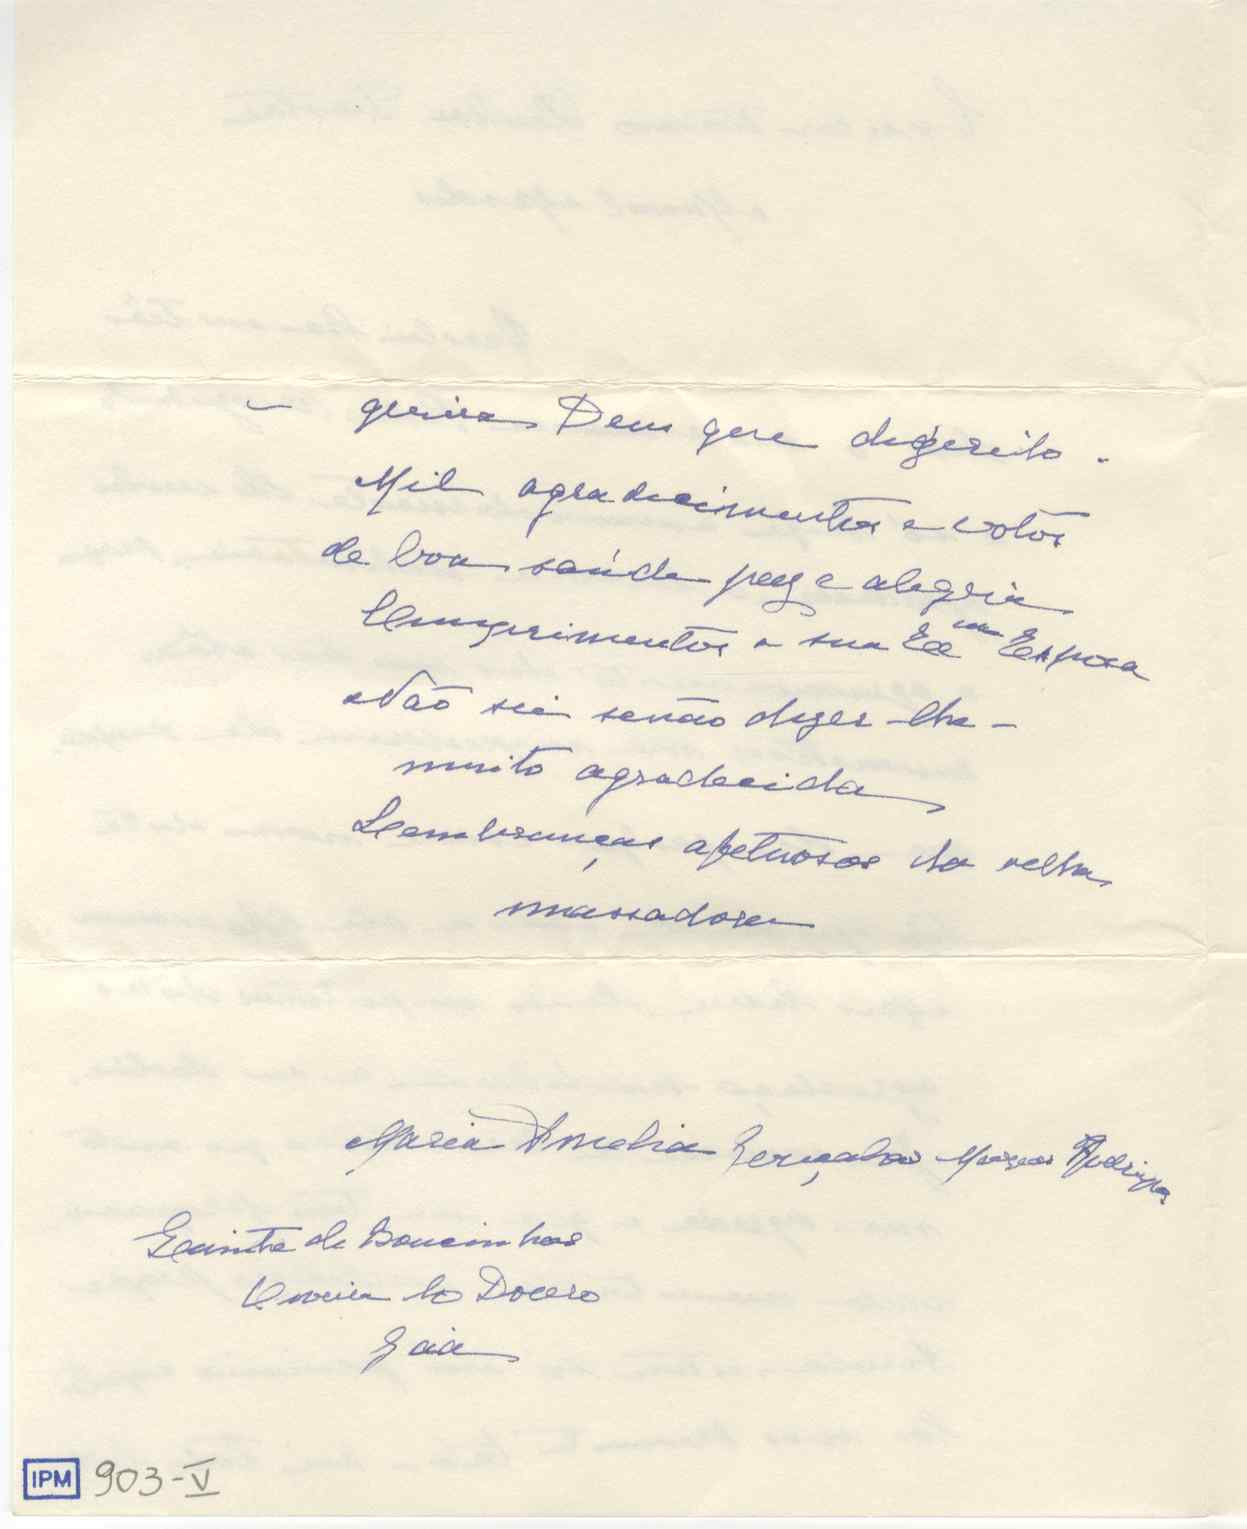 – queira Deus que
Mil agradecimentos e votos
de boa saúde paz e alegria
Cumprimentos a sua Exma Esposa
Não sei senão dizer-lhe –
muito agradecida
Lembranças afetuosas da velha
massadora
Maria Amelia Gonçalves Rodrigues
Quinta de Boucinhas
Oliveira do Douro
Gaia
IPM 903-V